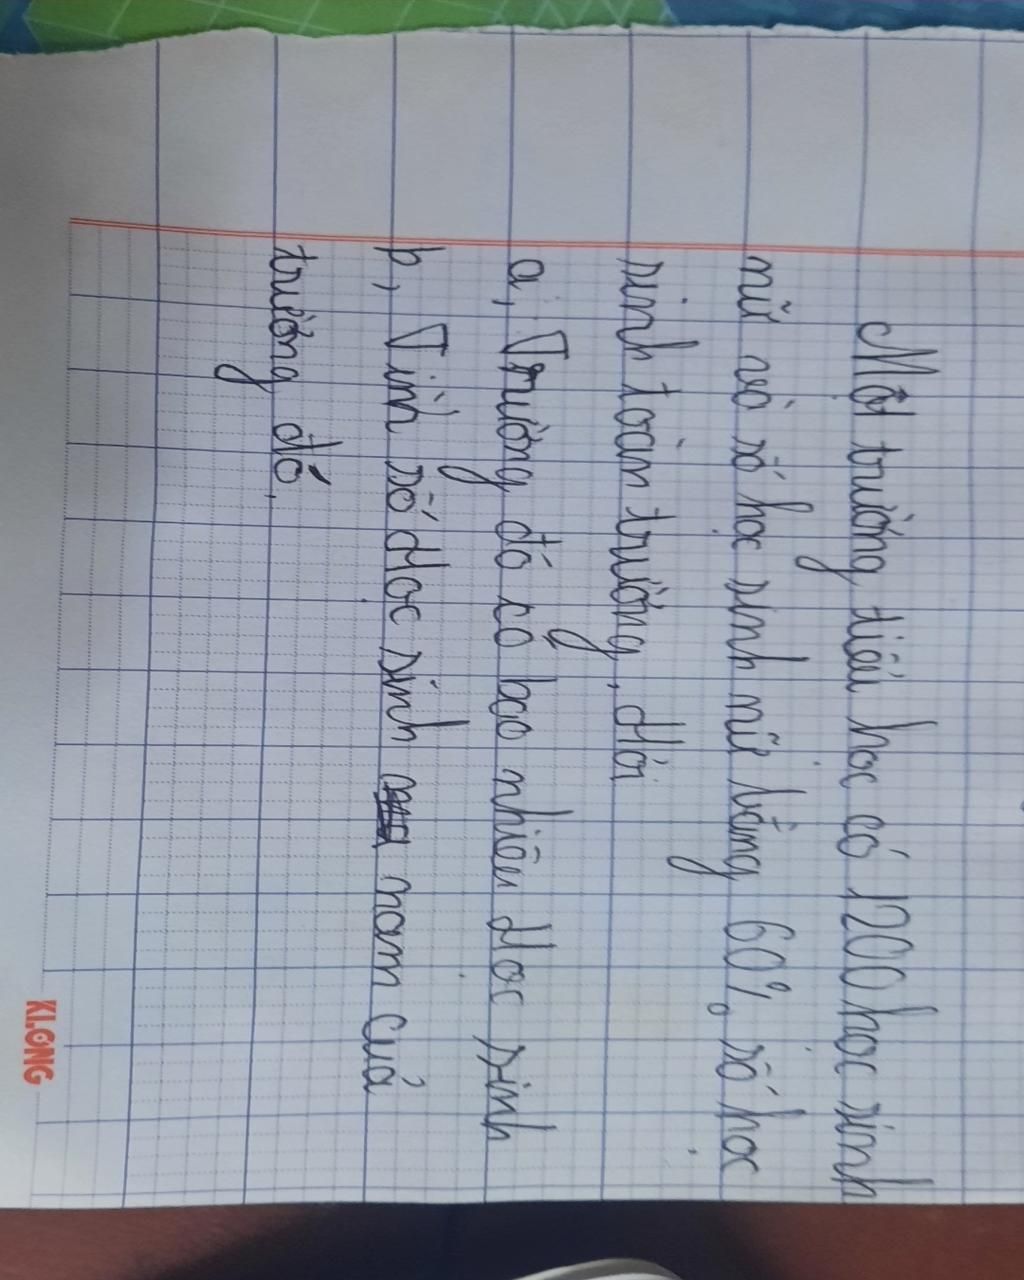 Một trường tiểu học có 1200 học sinh
nữ và số học sinh nữ bằng 60% số học
sinh toàn trường. Hỏi
a, Trường đó có bao nhiêu Học sinh
b, Tính số Học sinh nam của
trường đó.
KLONG